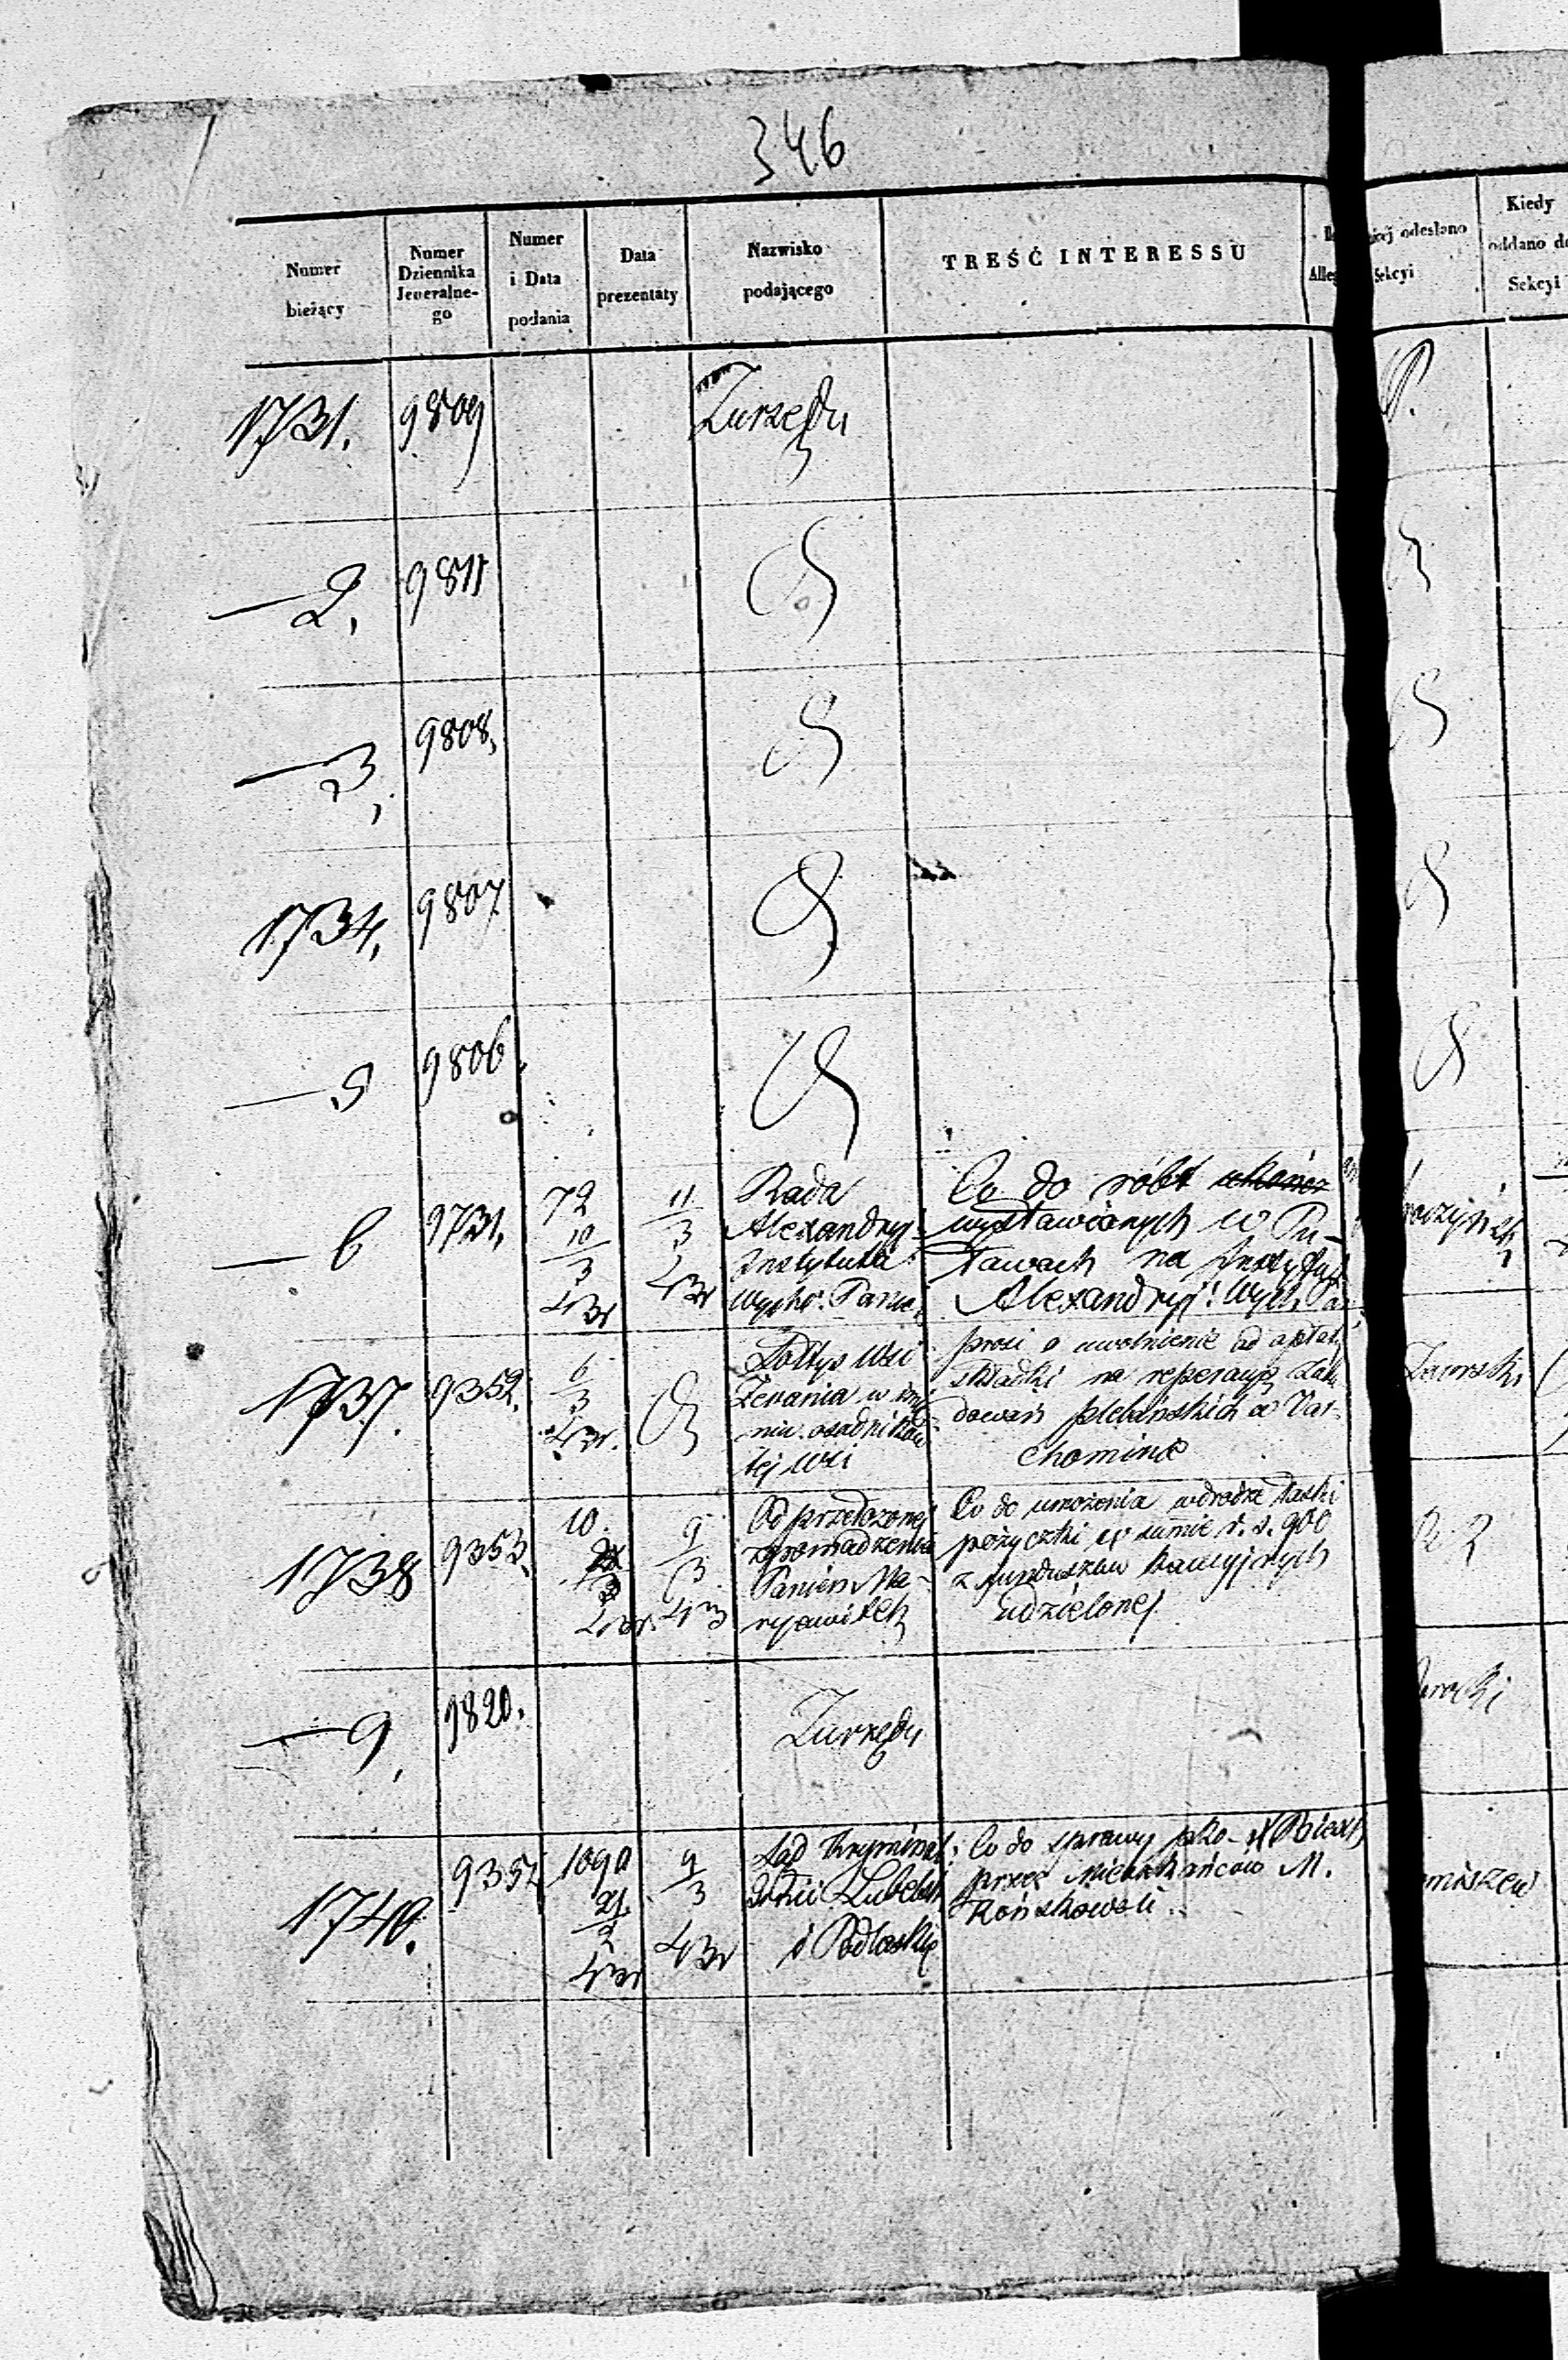 346
Numer bieżący
Numer Dziennika Jeneralne-go
Numer i Data podania
Data prezentaty
Nazwisko podającego
TREŚĆ INTERESSU
odesłano Sekcyi
Kiedy oddano do Sekcyi
1731. 9809 Zurzędu
— 2. 9811
— 3, 9808,
1734. 9807
— 5 9806.
— 6 9731. 72 10/3 43r 11/3 43r
Rada
Alexandryj:
Instytuta
Wycho: Panie
Co do robót
wystawionych w Pu-
ławach na Instytut
Alexandryj: Wych:
1737. 9352. 6/3 43r.
Sołtys Wsi
Zerania w imie
niu osadników
tej wsi
prosi o uwolnienie od opłaty
składki na reperacyą zabu
dowań plebańskich w Tar-
chominie
1738 9353. 10. 3 43r. 9/3 43
Od przełożonej
zgromadzenia
Panien Ma-
ryawitek
Co do umożenia wdrodze łaski
pożyczki w sumie r. s. 900
z funduszów kaucyjnych
udzielonej
— 9, 9820. Zurzędu
1740. 9354 1090 21/2 43r 9/3 43r
Sąd Kryminal:
Gubnii Lubelsk
i Podlaskiej
Co do sprawy
przez Mieszkańców M.
Końskowoli.